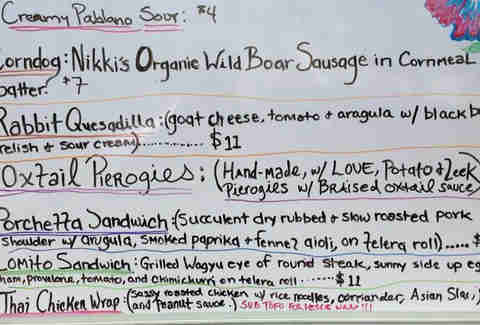 Creamy Pablano Sour: $4
Corndog: Nikki's Organic Wild Boar Sausage in Cornmeal
batter. $7
Rabbit Quesadilla: (goat cheese, tomato + aragula w/ black b
relish + sour cream)............ $11
Oxtail Pierogies: (Hand-made, w/ LOVE, Potato & Leek
Pierogies w/ Braised oxtail sauce)
Porchetta Sandwich: (Succulent dry rubbed + slow roasted pork
shoulder w/ arugula, smoked paprika + fennel aioli, on telera roll)..... $
Lomito Sandwich: Grilled Wagyu eye of round steak, sunny side up eg
ham, provolone, tomato, and chimichurri on telera roll ....... $11
Thai Chicken Wrap: (Sassy roasted chicken w/ rice noodles, corriander, Asian Slaw,
(and Peanut sauce.) SUB TOFU FOR VEGGIE WRAP!!!